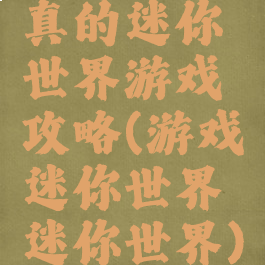 真的迷你
世界游戏
攻略(游戏
迷你世界
迷你世界)